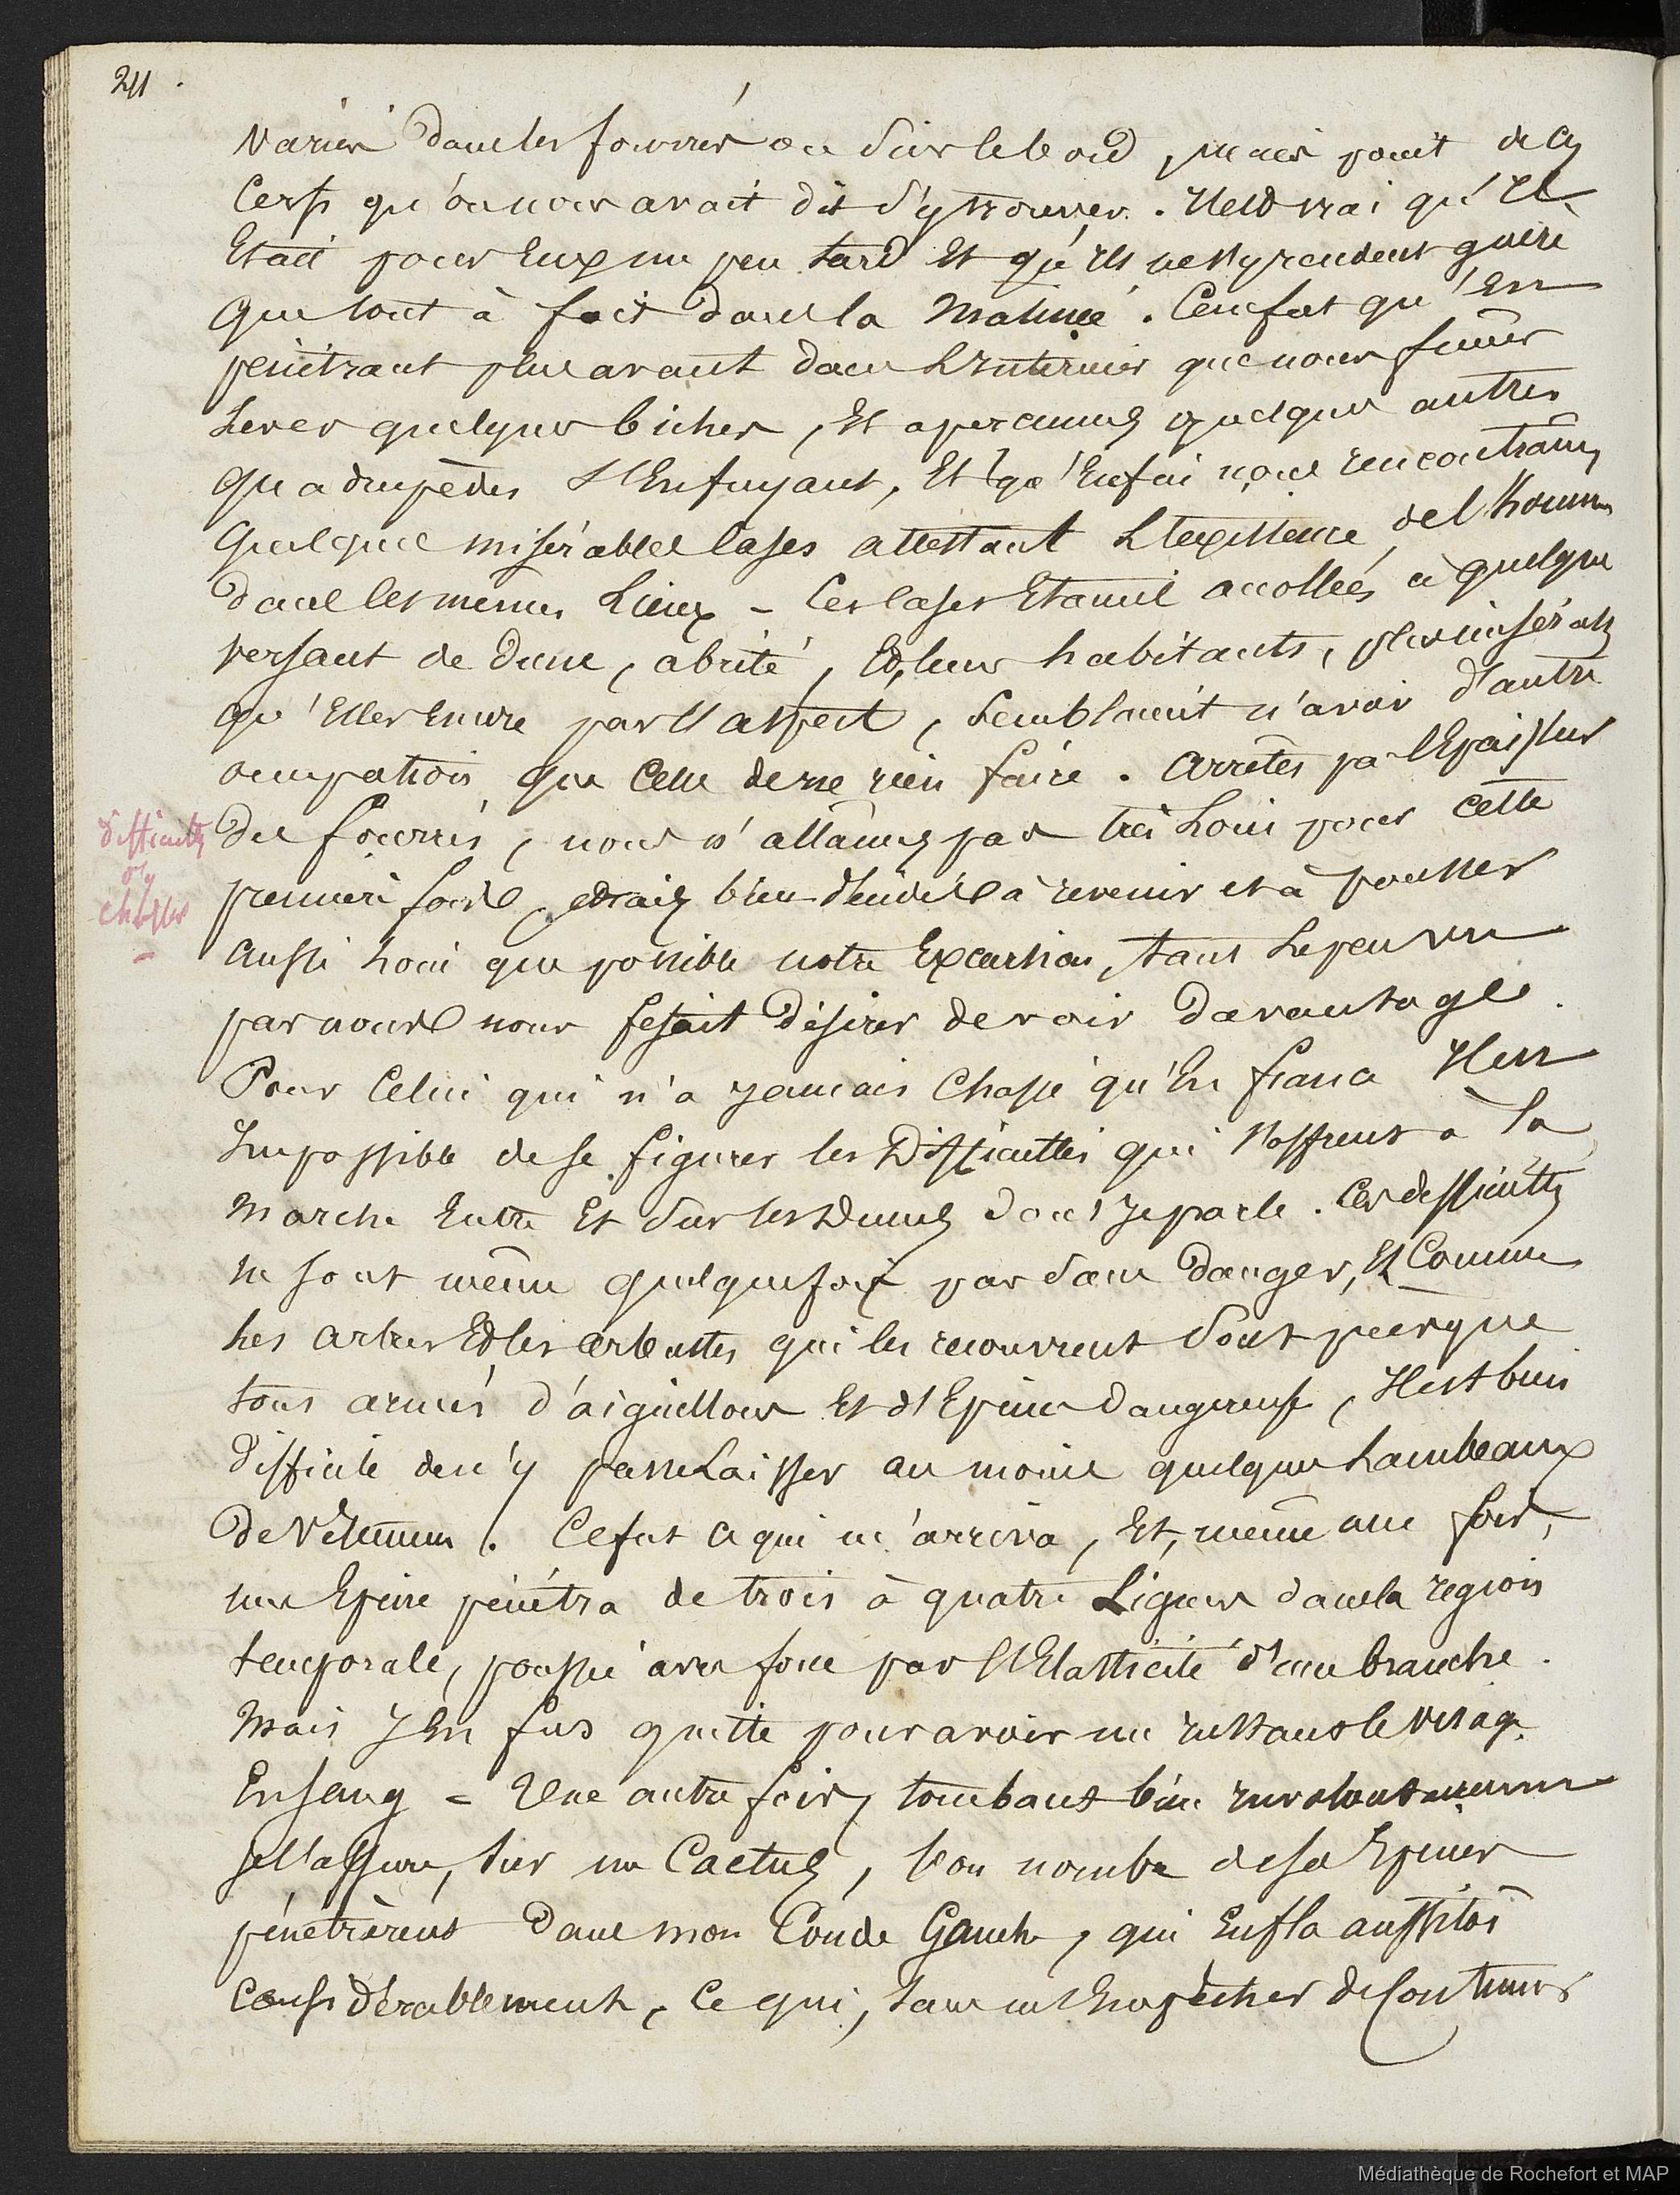 211.
variés dans les fourrés ou sur le bord, mais point de ces
Cerfs qu'on nous avait dit s'y trouver. Il est vrai qu'Il
Etait pour Eux un peu tard Et qu'ils ne s'y rendent guère
que tout à fait dans la matinée. Ce ne fut qu'En
pénétrant plus avant dans L'Intérieur que nous fîmes
Lever quelques biches, Et aperçumes quelques autres
quadrupèdes S'Enfuyant, Et qu'Enfin nous rencontrâmes
quelques misérables Cases attestant L'Existence de l'homme
dans les mêmes Lieux - Ces Cases Etaient accollées à quelque
versant de Dune, abrité, Et leurs habitants, plus misérables
qu'Elles Encore par l'aspect, Semblaient n'avoir d'autre
occupation que Celle de ne rien faire. Arrêtés par l'Epaisseur
des fourrés, nous n'allâmes pas très Loin pour cette
première fois, mais bien décidés à revenir et à pousser
aussi Loin que possible notre Excursion, tant Le peu vu
par nous nous fesait Désirer de voir Davantage.
Pour Celui qui n'a Jamais Chassé qu'En france Il est
Impossible de se figurer les Difficultés qui s'offrent à la
marche Entre Et Sur les Dunes dont Je parle. Ces difficultés
ne sont même quelquefois pas sans Danger, Et Comme
Les arbres Et les arbustes qui les recouvrent Sont presque
tous armés d'aiguillons Et d'Epines Dangereuses, Il est bien
Difficile de n'y pas Laisser au moins quelques Lambeaux
De Vêtemens. Ce fut ce qui m'arriva, Et, même une fois,
une Epine pénétra de trois à quatre Lignes dans la région
temporale, poussée avec force par l'Elasticité d'une branche.
Mais J'En fus quitte pour avoir un instant le visage
En sang = Une autre fois, tombant bien Involontairement
Je l'assure, Sur un Cactus, bon nombre de ses Epines
pénétrèrent Dans mon Coude Gauche, qui Enfla aussitôt
Considérablement, Ce qui, Sans m'Empêcher de Continuer
difficultés
d'y
chasser
Médiathèque de Rochefort et MAP